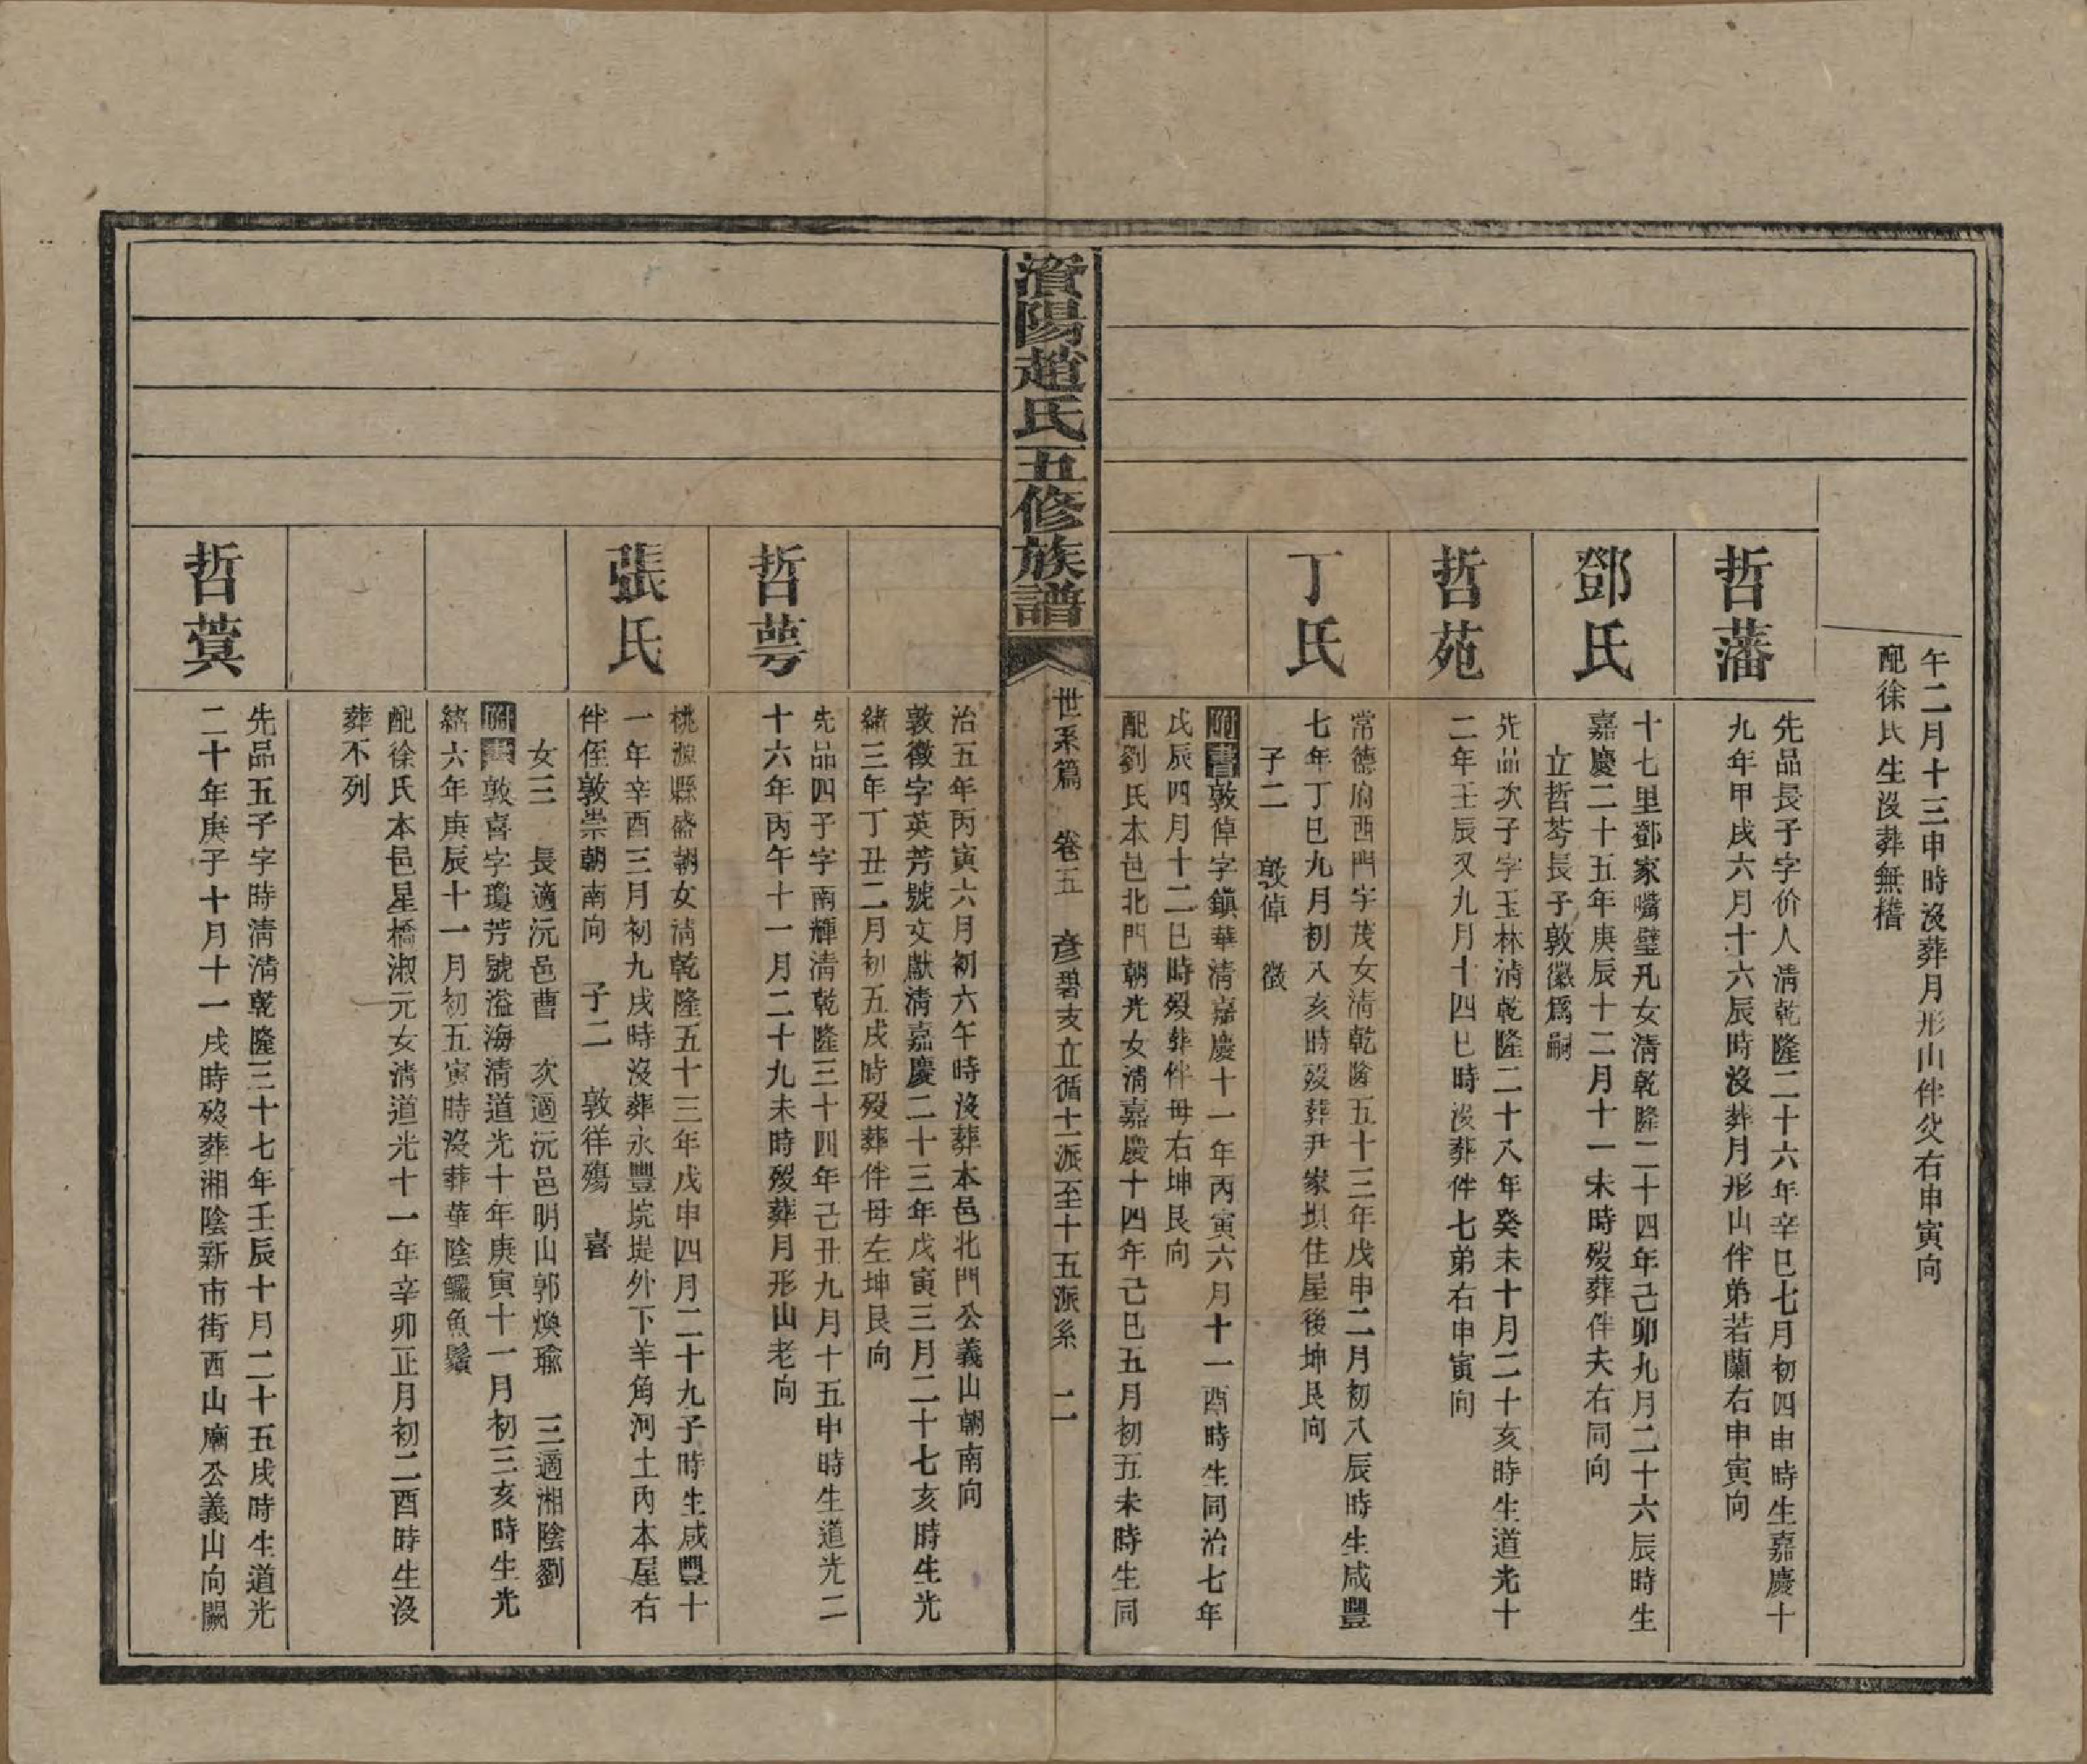 午二月十三申時沒葬月形山伴父右申寅向
配徐氏生沒葬無稽
哲藩
先品長子字价人清乾隆二十六年辛巳七月初四申時生嘉慶十
九年甲戌六月十六辰時沒葬月形山伴弟若蘭右申寅向
鄧氏
十七里鄧家嘴璧凡女清乾隆二十四年己卯九月二十六辰時生
嘉慶二十五年庚辰十二月十一未時歿葬伴夫右同向
立哲芩長子敦徽爲嗣
哲苑
先品次子字玉林清乾隆二十八年癸未十月二十亥時生道光十
二年壬辰又九月十四巳時沒葬伴七弟右申寅向
丁氏
常德府西門字茂女清乾隆五十三年戊申二月初八辰時生咸豐
七年丁巳九月初八亥時歿葬尹家垻住屋後坤艮向
子二 敦倬 徵
附書敦倬字鎮華清嘉慶十一年丙寅六月十一酉時生同治七年
戊辰四月十二巳時歿葬伴母右坤艮向
配劉氏本邑北門朝光女清嘉慶十四年己巳五月初五未時生同
濱陽趙氏五修族譜
世系篇 卷五 彦碧支立循十一派至十五派系 二
治五年丙寅六月初六午時沒葬本邑北門公義山朝南向
敦徵字英芳號文獻清嘉慶二十三年戊寅三月二十七亥時生光
緒三年丁丑二月初五戌時歿葬伴母左坤艮向
哲萼
先品四子字南輝清乾隆三十四年己丑九月十五申時生道光二
十六年丙午十一月二十九未時歿葬月形山老向
張氏
桃源縣盛朝女清乾隆五十三年戊申四月二十九子時生咸豐十
一年辛酉三月初九戌時沒葬永豐垸堤外下羊角河土內本屋右
伴侄敦崇朝南向 子二 敦徉殤 喜
女三 長適沅邑曹 次適沅邑明山郭煥瑜 三適湘陰劉
附書敦喜字瓊芳號溢海清道光十年庚寅十一月初三亥時生光
緒六年庚辰十一月初五寅時沒葬華陰鱺魚鬚
配徐氏本邑星橋淑元女清道光十一年辛卯正月初二酉時生沒
葬不列
哲蓂
先品五子字時清清乾隆三十七年壬辰十月二十五戌時生道光
二十年庚子十月十一戌時歿葬湘陰新市街西山廟公義山向闕